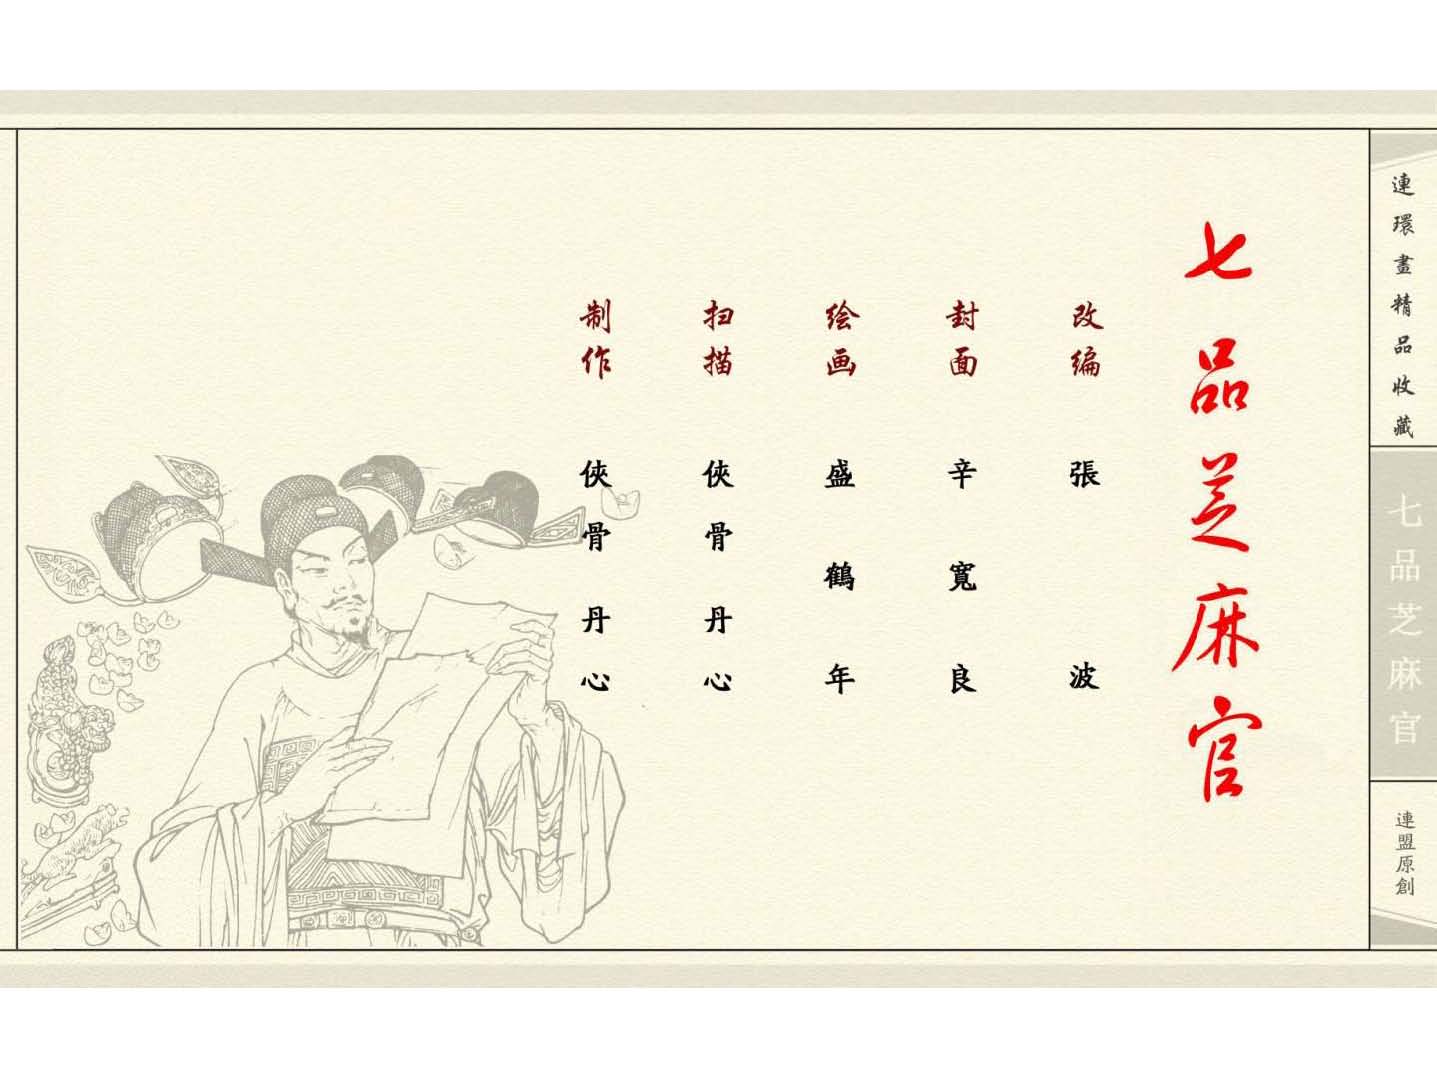 連環畫精品收藏
七品芝麻官
連盟原創
七品芝麻官
改编 張波
封面 辛寬良
绘画 盛鶴年
扫描 俠骨丹心
制作 俠骨丹心